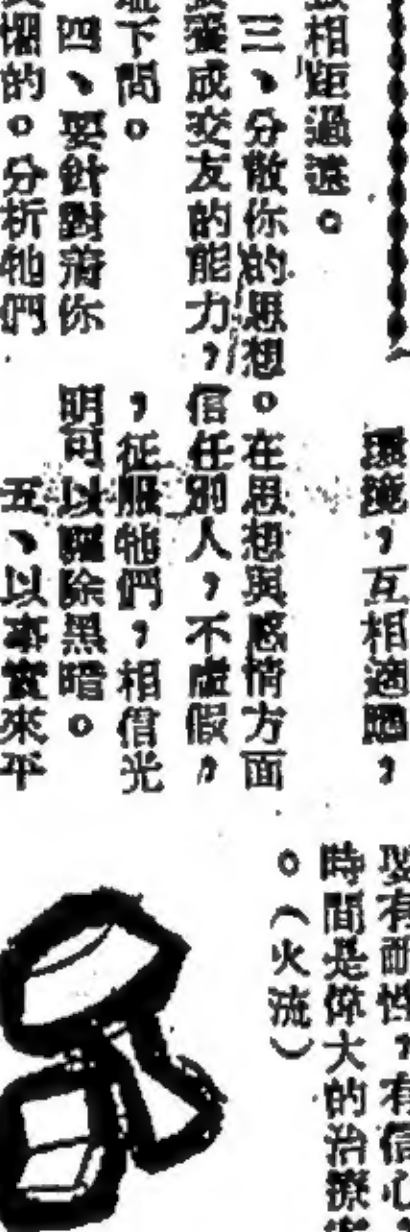 相距過遠。
三、分散你的思想。在思想與感情方面
養成交友的能力，信任別人，不虛假，
下問。
四、要針對着你
懼的。分析牠們
環境，互相適應，
，征服牠們，相信光
明可以驅除黑暗。
五、以事實來平
要有耐性，有信心
時間是偉大的治療
。（火流）